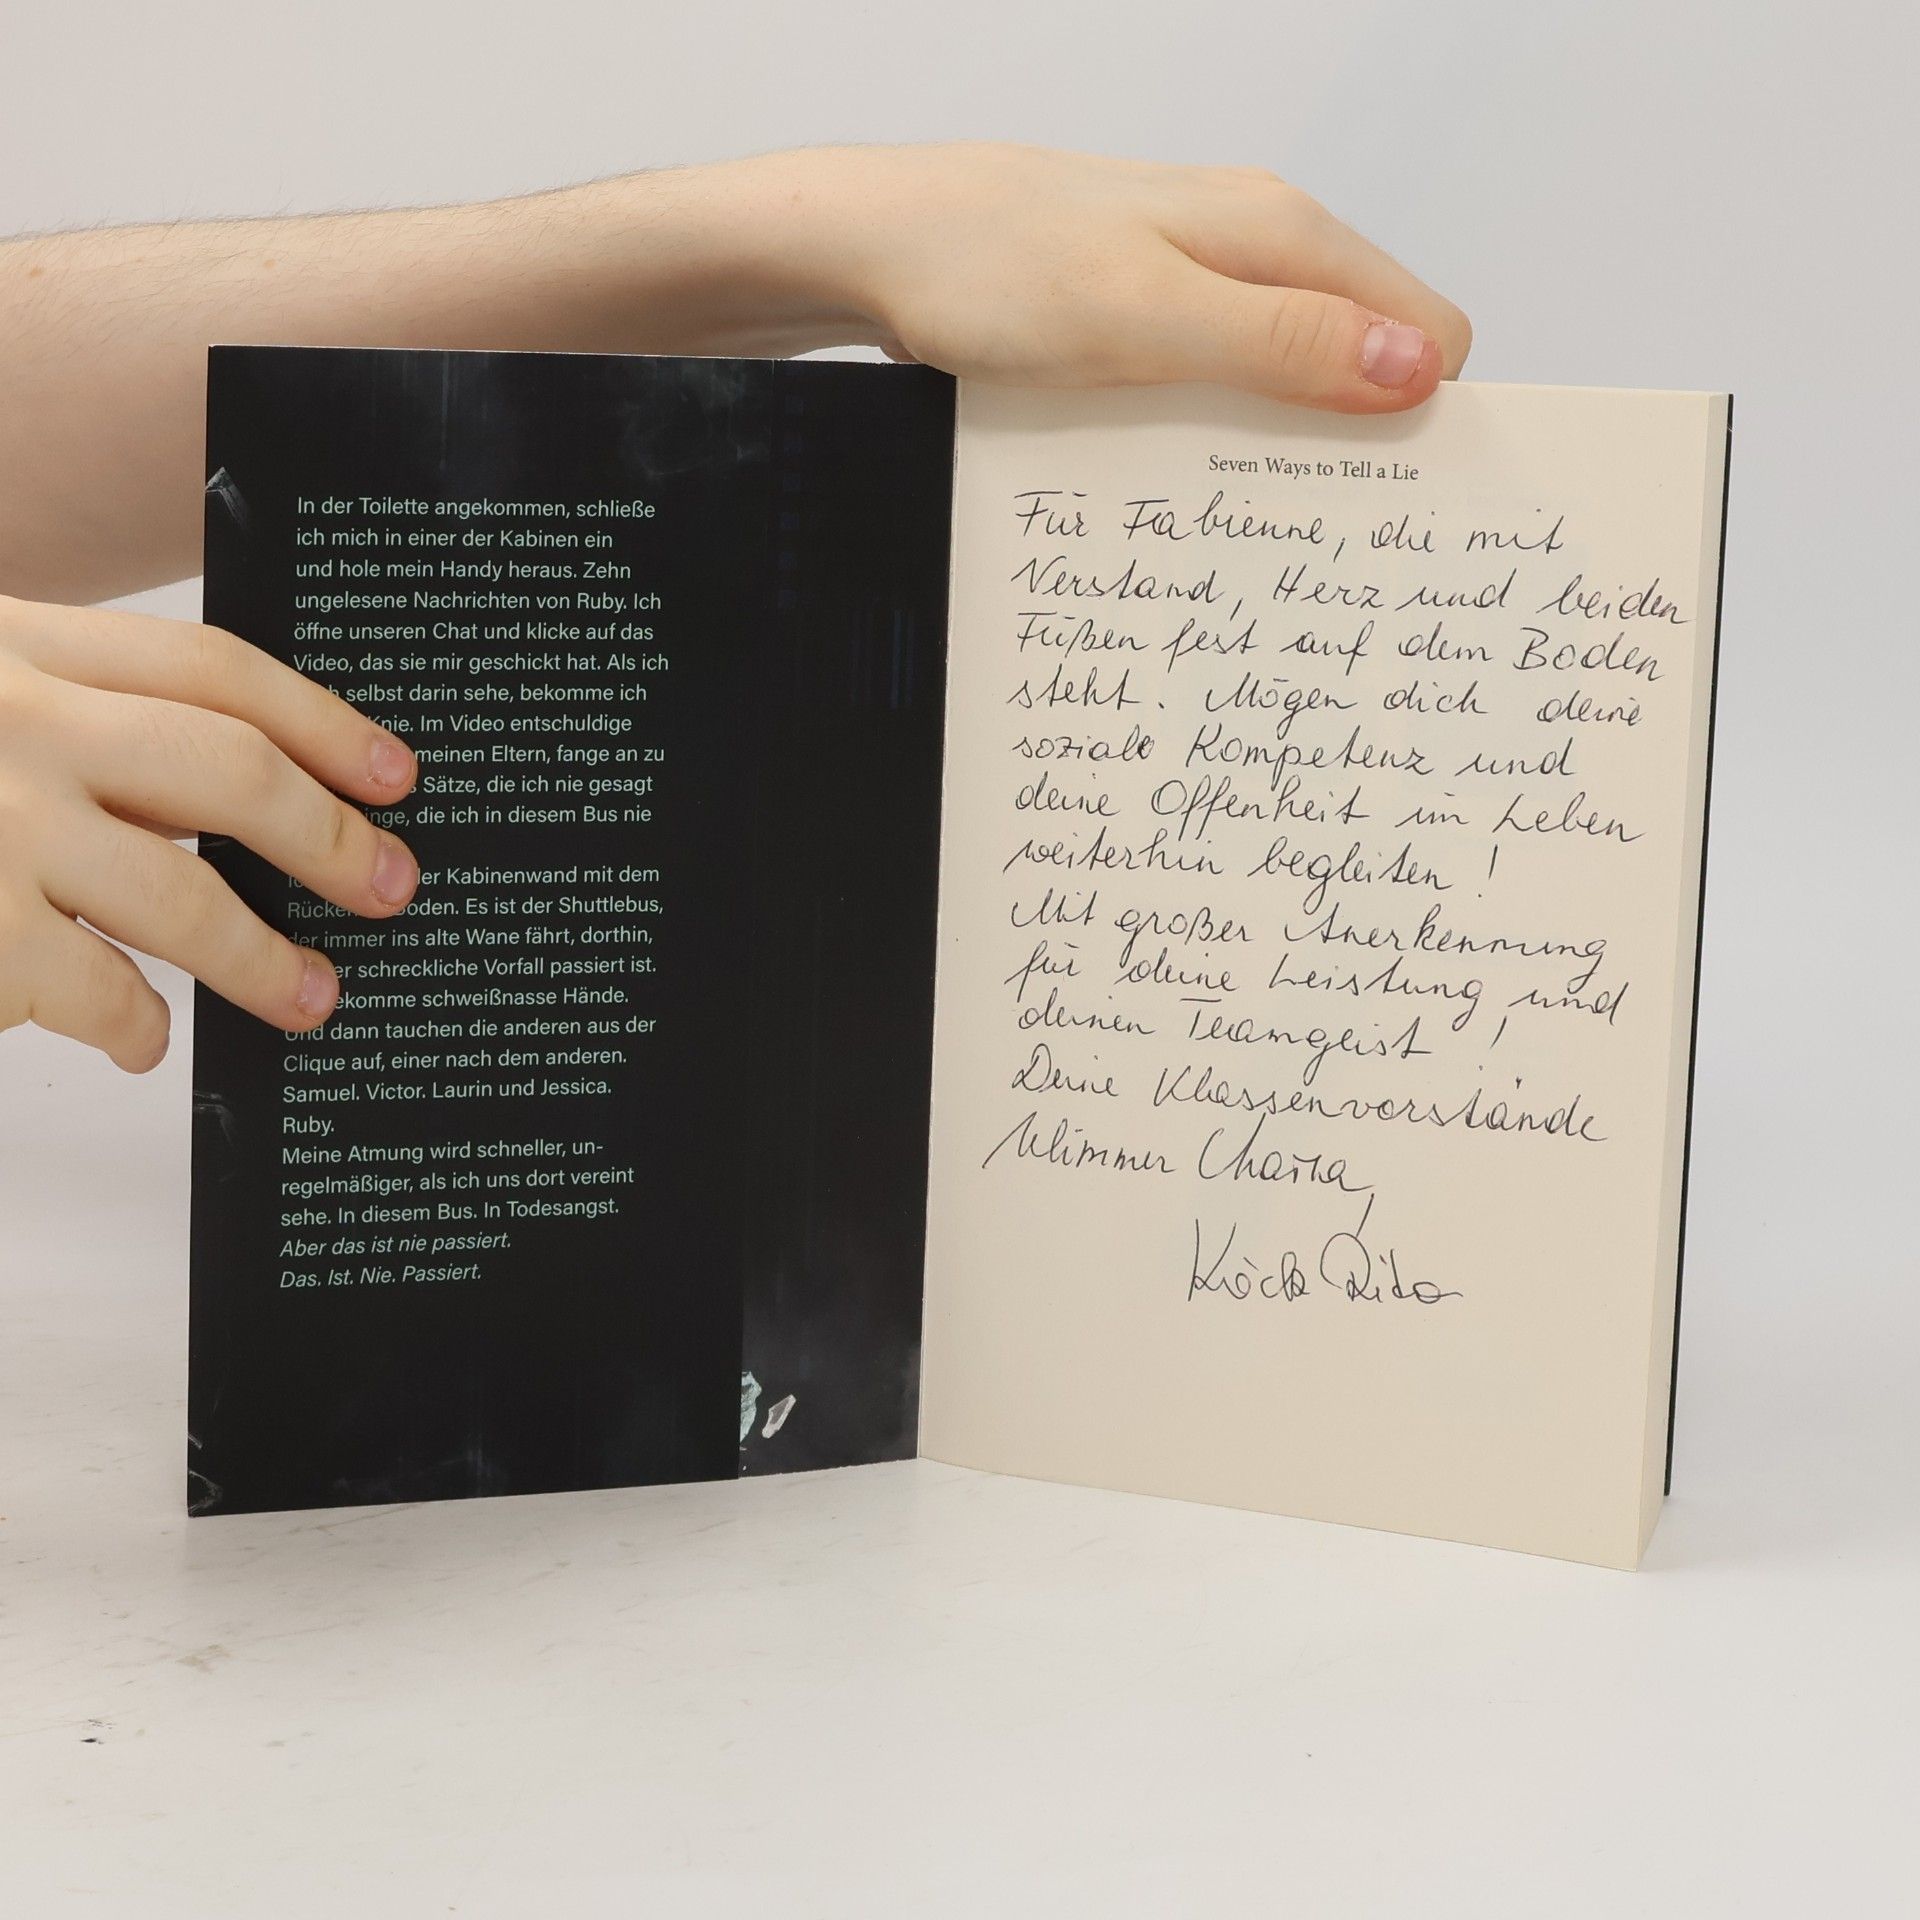 In der Toilette angekommen, schließe
ich mich in einer der Kabinen ein
und hole mein Handy heraus. Zehn
ungelesene Nachrichten von Ruby. Ich
öffne unseren Chat und klicke auf das
Video, das sie mir geschickt hat. Als ich
selbst darin sehe, bekomme ich
Knie. Im Video entschuldige
meinen Eltern, fange an zu
Sätze, die ich nie gesagt
die ich in diesem Bus nie
Kabinenwand mit dem
Es ist der Shuttlebus,
der immer ins alte Wane fährt, dorthin,
schreckliche Vorfall passiert ist.
schweißnasse Hände.
Und dann tauchen die anderen aus der
Clique auf, einer nach dem anderen.
Samuel. Victor. Laurin und Jessica.
Ruby.
Meine Atmung wird schneller, un-
regelmäßiger, als ich uns dort vereint
sehe. In diesem Bus. In Todesangst.
Aber das ist nie passiert.
Das. Ist. Nie. Passiert.
Seven Ways to Tell a Lie
Für Fabienne, die mit
Verstand, Herz und beiden
Füßen fest auf dem Boden
steht. Mögen dich deine
soziale Kompetenz und
deine Offenheit im Leben
weiterhin begleiten!
Mit großer Anerkennung
für deine Leistung und
deinen Teamgeist!
Deine Klassenvorstände
Wimmer
Köck Rita